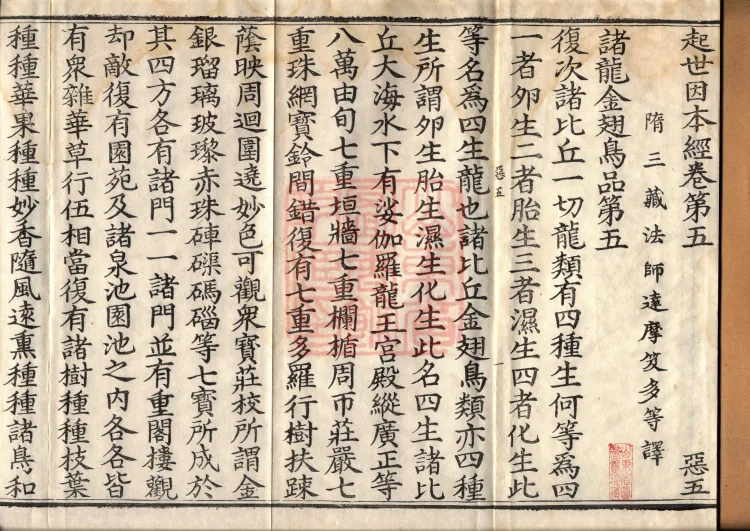 起世因本經卷第五 惡五
隋三藏法師達摩笈多等譯
諸龍金翅鳥品第五
復次諸比丘一切龍類有四種生何等爲四
一者卵生二者胎生三者濕生四者化生此
惡五 一
等名爲四生龍也諸比丘金翅鳥類亦四種
生所謂卵生胎生濕生化生此名四生諸比
丘大海水下有娑伽羅龍王宫殿縱廣正等
八萬由旬七重垣牆七重欄楯周帀莊嚴七
重珠網寶鈴間錯復有七重多羅行樹扶踈
蔭映周迴圍遶妙色可觀衆寶莊校所謂金
銀瑠璃玻瓈赤珠硨磲碼碯等七寶所成於
其四方各有諸門一一諸門並有重閣樓觀
却敵復有園苑及諸泉池園池之内各各皆
有衆雜華草行伍相當復有諸樹種種枝葉
種種華果種種妙香隨風遠熏種種諸鳥和